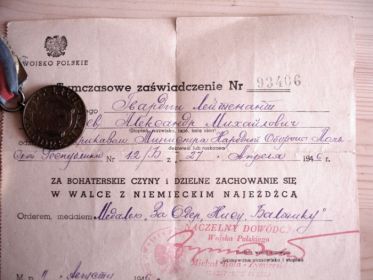 WOJSKO POLSKIE
Tymczasowe zaświadczenie Nr 93406
Гвардии Лейтенант
Александр Михайлович
(Stopień, nazwisko, imię, imię ojca)
Министра Народной Обороны Поль
ской Республики Nr 12/В z 27 Апреля 1946 r.
ZA BOHATERSKIE CZYNY I DZIELNE ZACHOWANIE SIĘ
W WALCE Z NIEMIECKIM NAJEŹDŹCĄ
Orderem, medalem Медалью „За Одер, Нису, Балтику"
NACZELNY DOWÓDCA
Wojska Polskiego
Michał
Августа